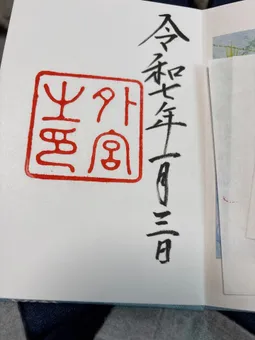 令和七年一月三日
外宮
之印